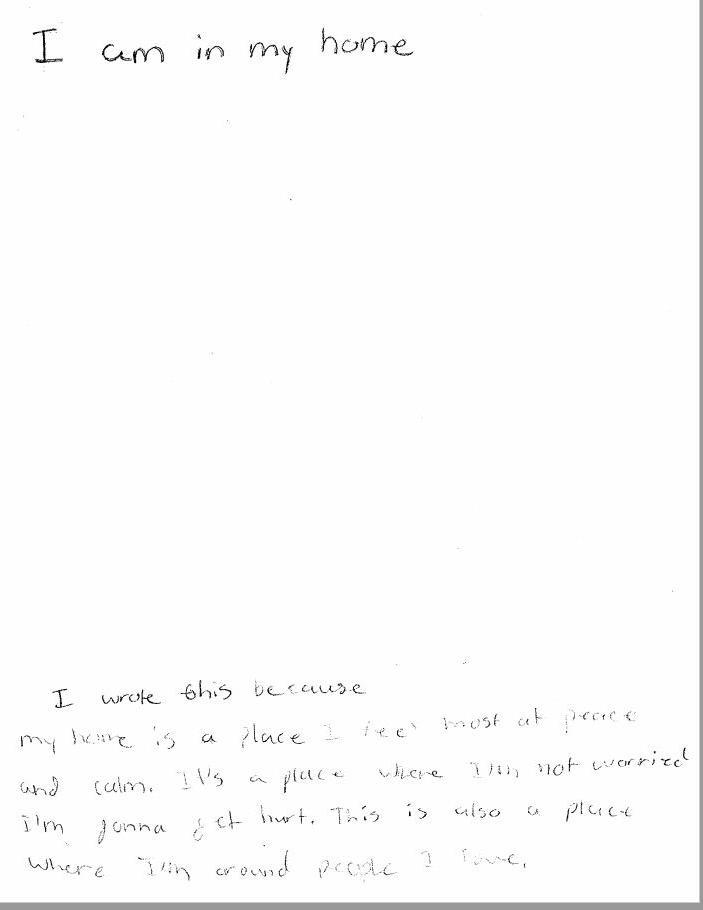 I am in my home
I wrote this because
my home is a place I feel most at peace
and calm. It's a place where I'm not worried
I'm gonna get hurt. This is also a place
where I'm around people I love.